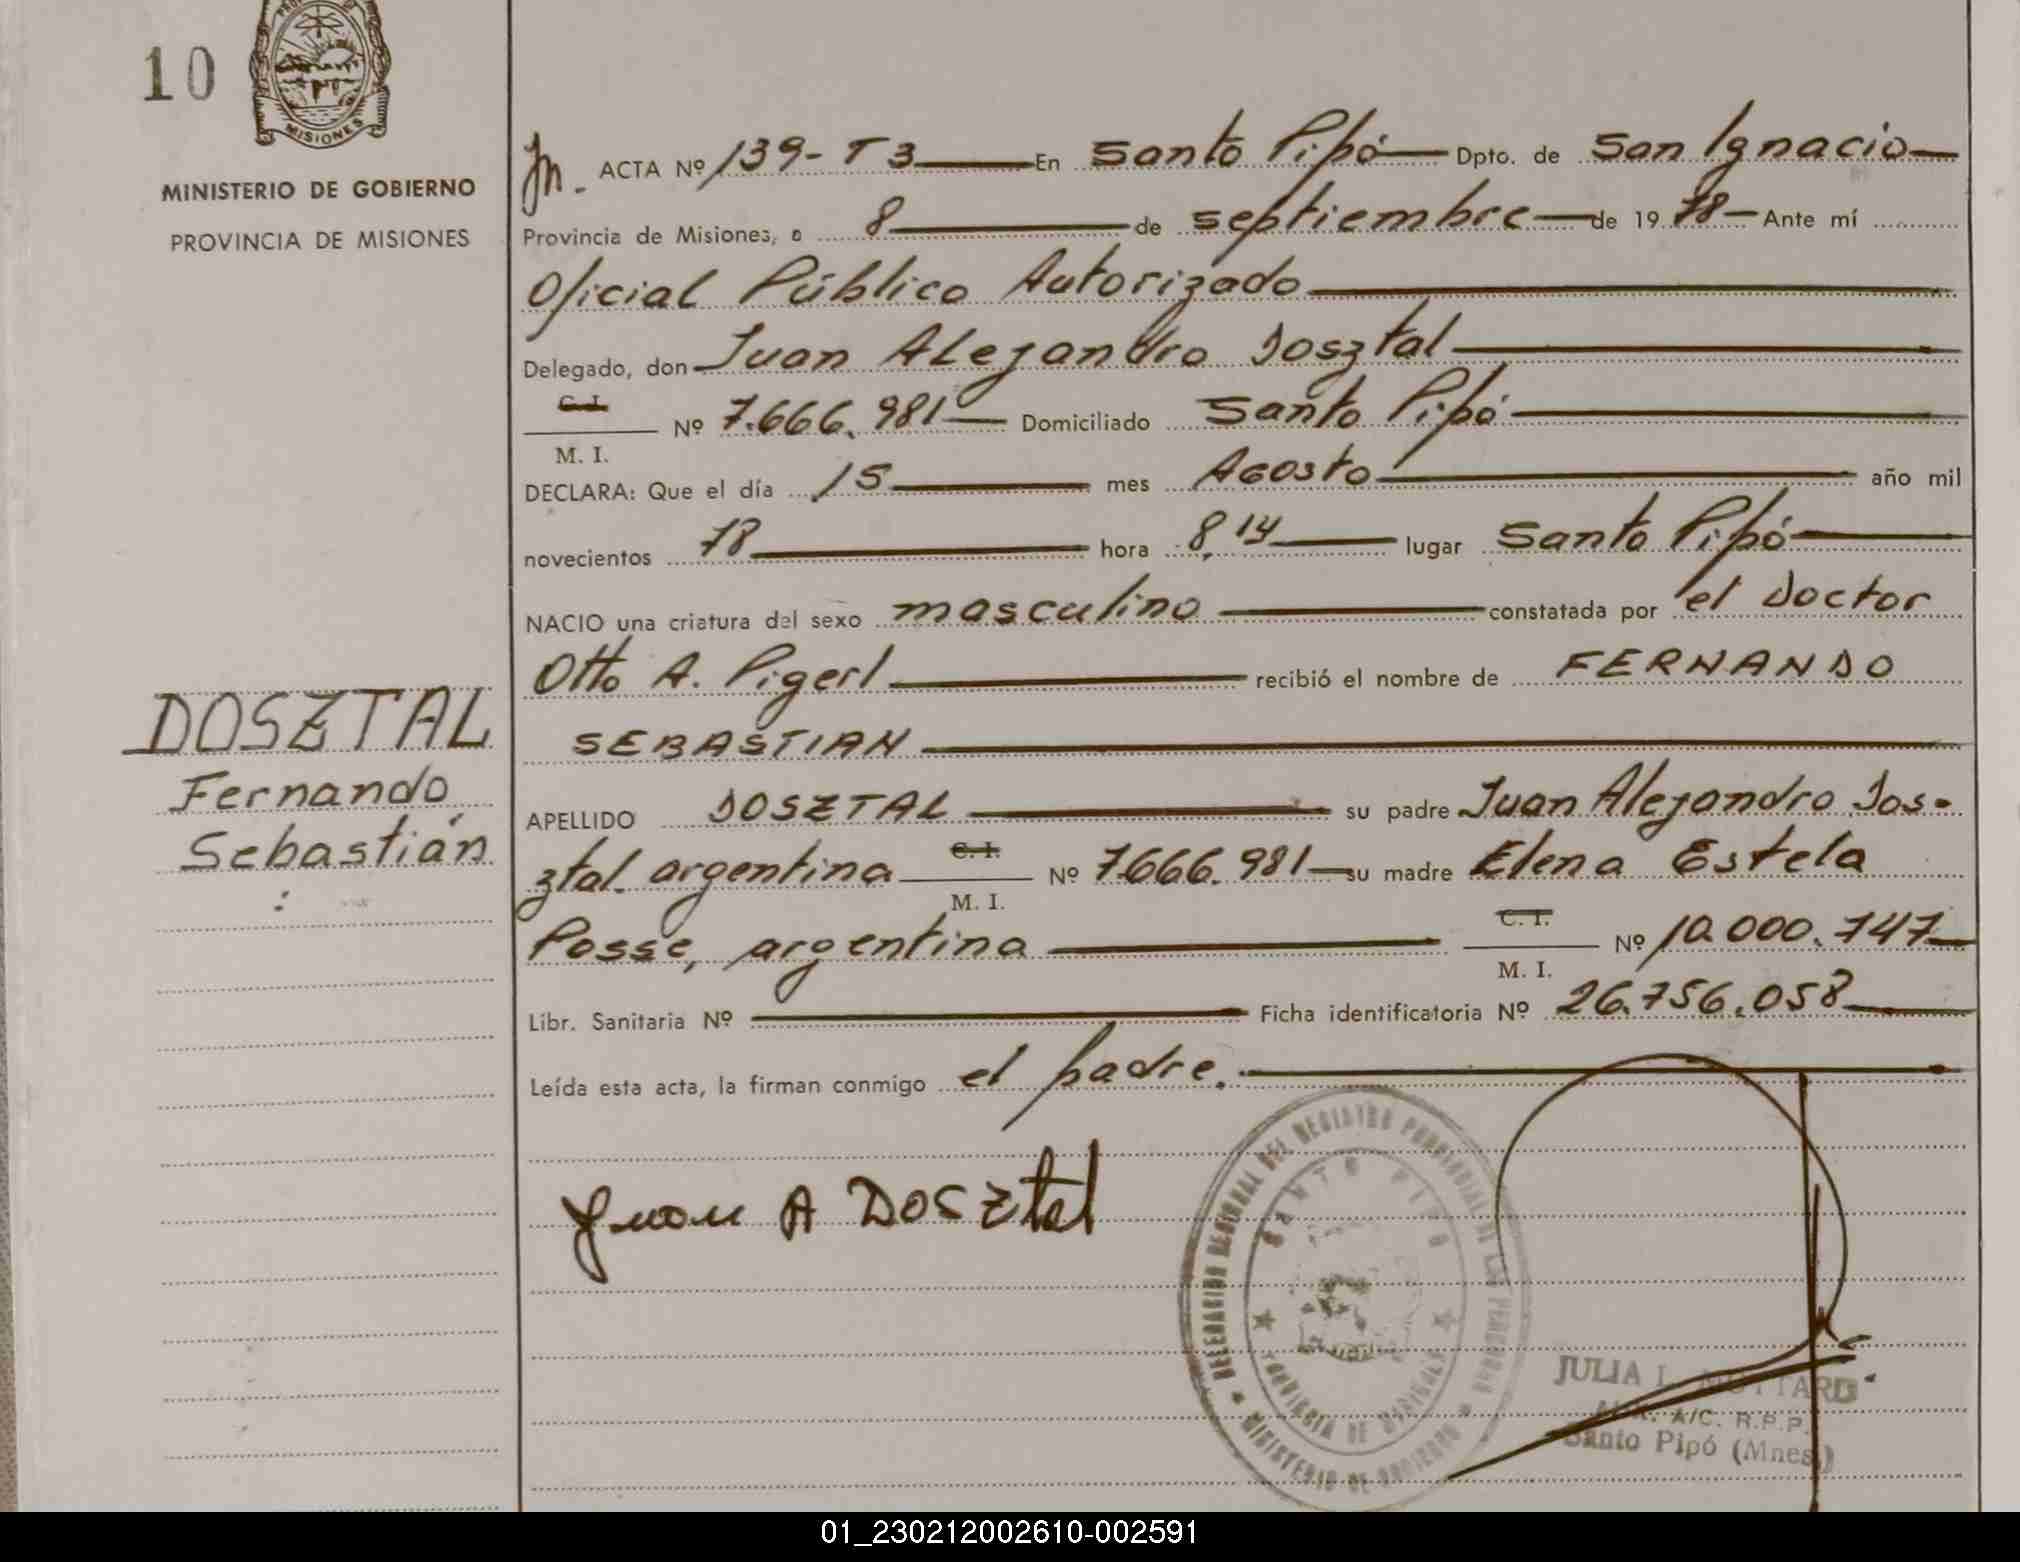 10
MISIONES
MINISTERIO DE GOBIERNO
PROVINCIA DE MISIONES
DOSZTAL
Fernando
Sebastián
ACTA Nº 139-T3 En Santo Pipó Dpto. de San Ignacio
Provincia de Misiones, a 8 de septiembre de 1978 Ante mí
Oficial Público Autorizado
Delegado, don Juan Alejandro Dosztal
C. I.
Nº 7.666.981 Domiciliado Santo Pipó
M. I.
DECLARA: Que el día 15 mes Agosto año mil
novecientos 78 hora 8,14 lugar Santo Pipó
NACIO una criatura del sexo masculino constatada por el Doctor
Otto A. Pigerl recibió el nombre de FERNANDO
SEBASTIAN
APELLIDO DOSZTAL su padre Juan Alejandro Dos-
ztal. argentina C. I. Nº 7.666.981 su madre Elena Estela
M. I.
Posse, argentina C. I. Nº 10.000.747
M. I.
Libr. Sanitaria Nº Ficha identificatoria Nº 26.756.058
Leída esta acta, la firman conmigo el padre.
Juan A Dosztal
DELEGACION REGIONAL DEL REGISTRO PROVINCIAL DE LAS PERSONAS
SANTO PIPO
PROVINCIA DE MISIONES
MINISTERIO DE GOBIERNO
JULIA L. MOTTARD
A/C. R.P.P.
Santo Pipó (Mnes)
01_230212002610-002591